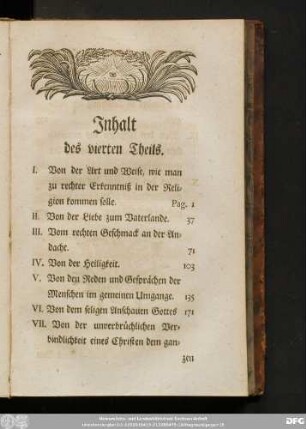 Inhalt
des vierten Theils.
I. Von der Art und Weise, wie man
zu rechter Erkenntniß in der Reli-
gion kommen solle. Pag. 1
II. Von der Liebe zum Vaterlande. 37
III. Vom rechten Geschmack an der An-
dacht. 71
IV. Von der Heiligkeit. 103
V. Von den Reden und Gesprächen der
Menschen im gemeinen Umgange. 135
VI. Von dem seligen Anschauen Gottes 171
VII. Von der unverbrüchlichen Ver-
bindlichkeit eines Christen dem gan-
zen